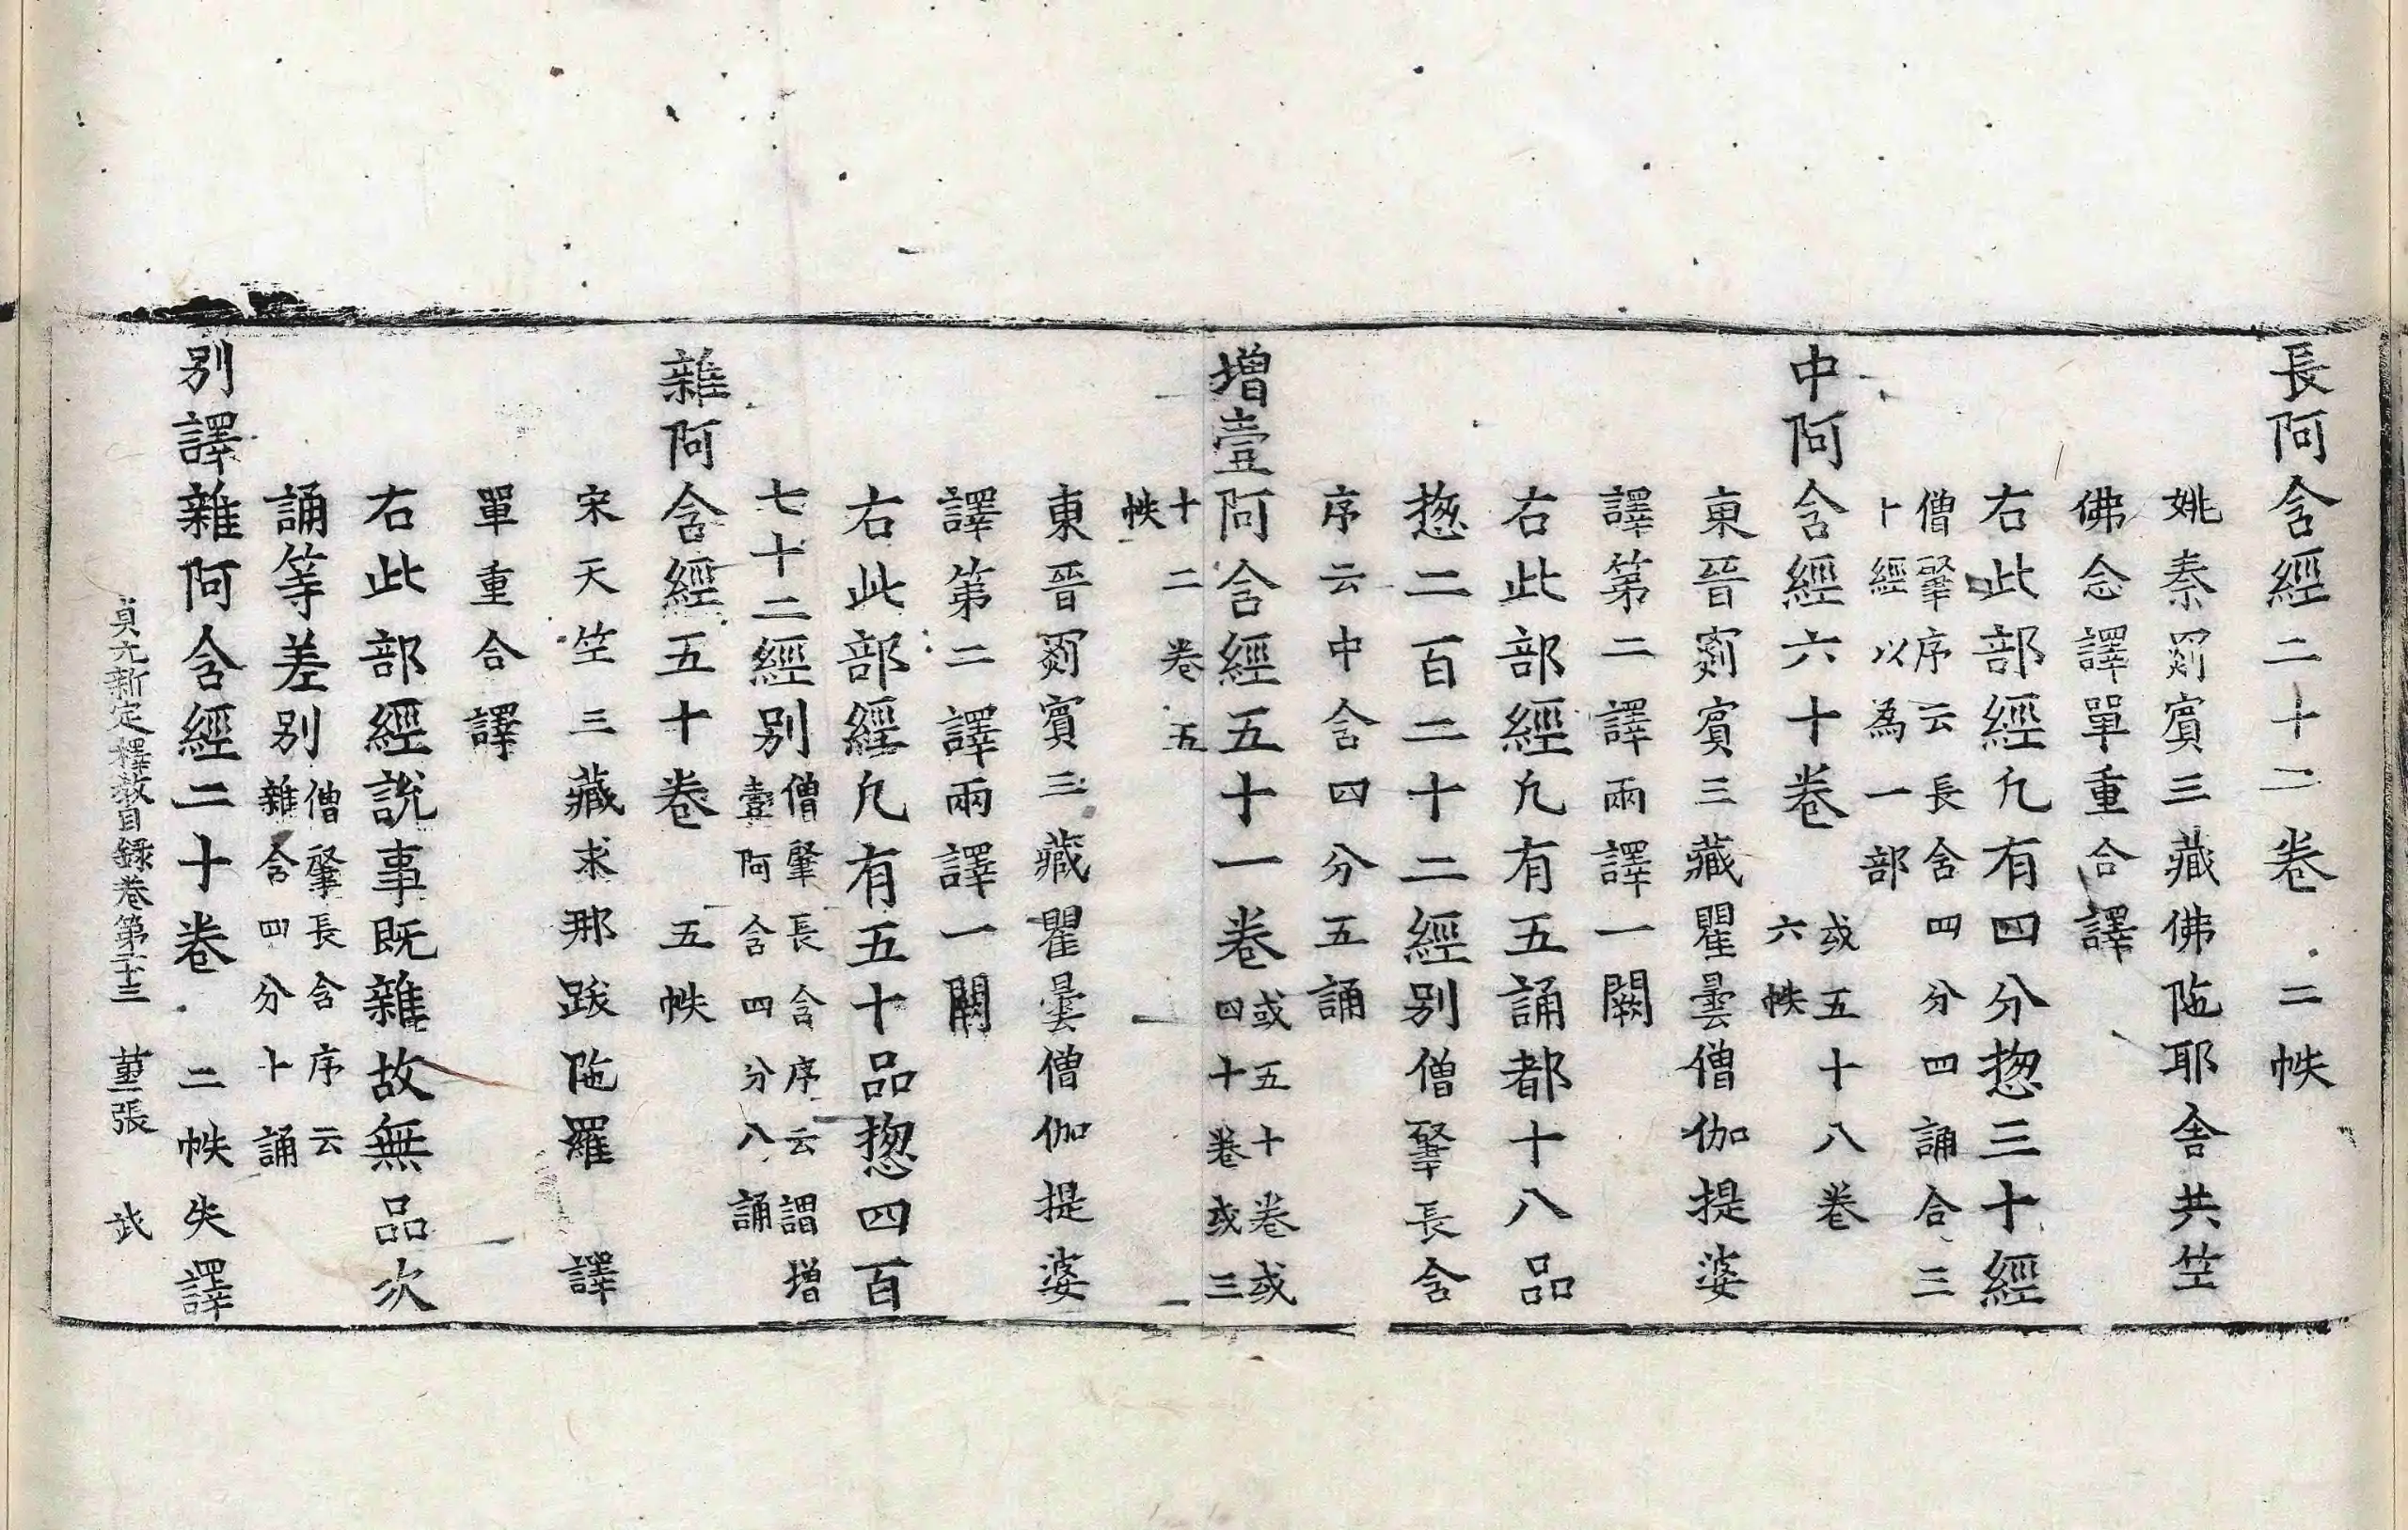 長阿含經二十二卷 二帙
姚秦罽賓三藏佛陁耶舍共竺
佛念譯單重合譯
右此部經凡有四分惣三十經
僧肇序云長含四分四誦合三
十經以為一部
中阿含經六十卷 或五十八卷
六帙
東晉罽賓三藏瞿曇僧伽提婆
譯第二譯兩譯一闕
右此部經凡有五誦都十八品
惣二百二十二經別僧肇長含
序云中含四分五誦
增壹阿含經五十一卷 或五十卷或
四十卷或三
十二卷五
帙
東晉罽賓三藏瞿曇僧伽提婆
譯第二譯兩譯一闕
右此部經凡有五十品惣四百
七十二經別 僧肇長含序云謂增
壹阿含四分八誦
雜阿含經五十卷 五帙
宋天竺三藏求那跋陁羅 譯
單重合譯
右此部經說事既雜故無品次
誦等差別 僧肇長含序云
雜含四分十誦
別譯雜阿含經二十卷 二帙失譯
貞元新定釋教目錄卷第二十三 苐一張 武